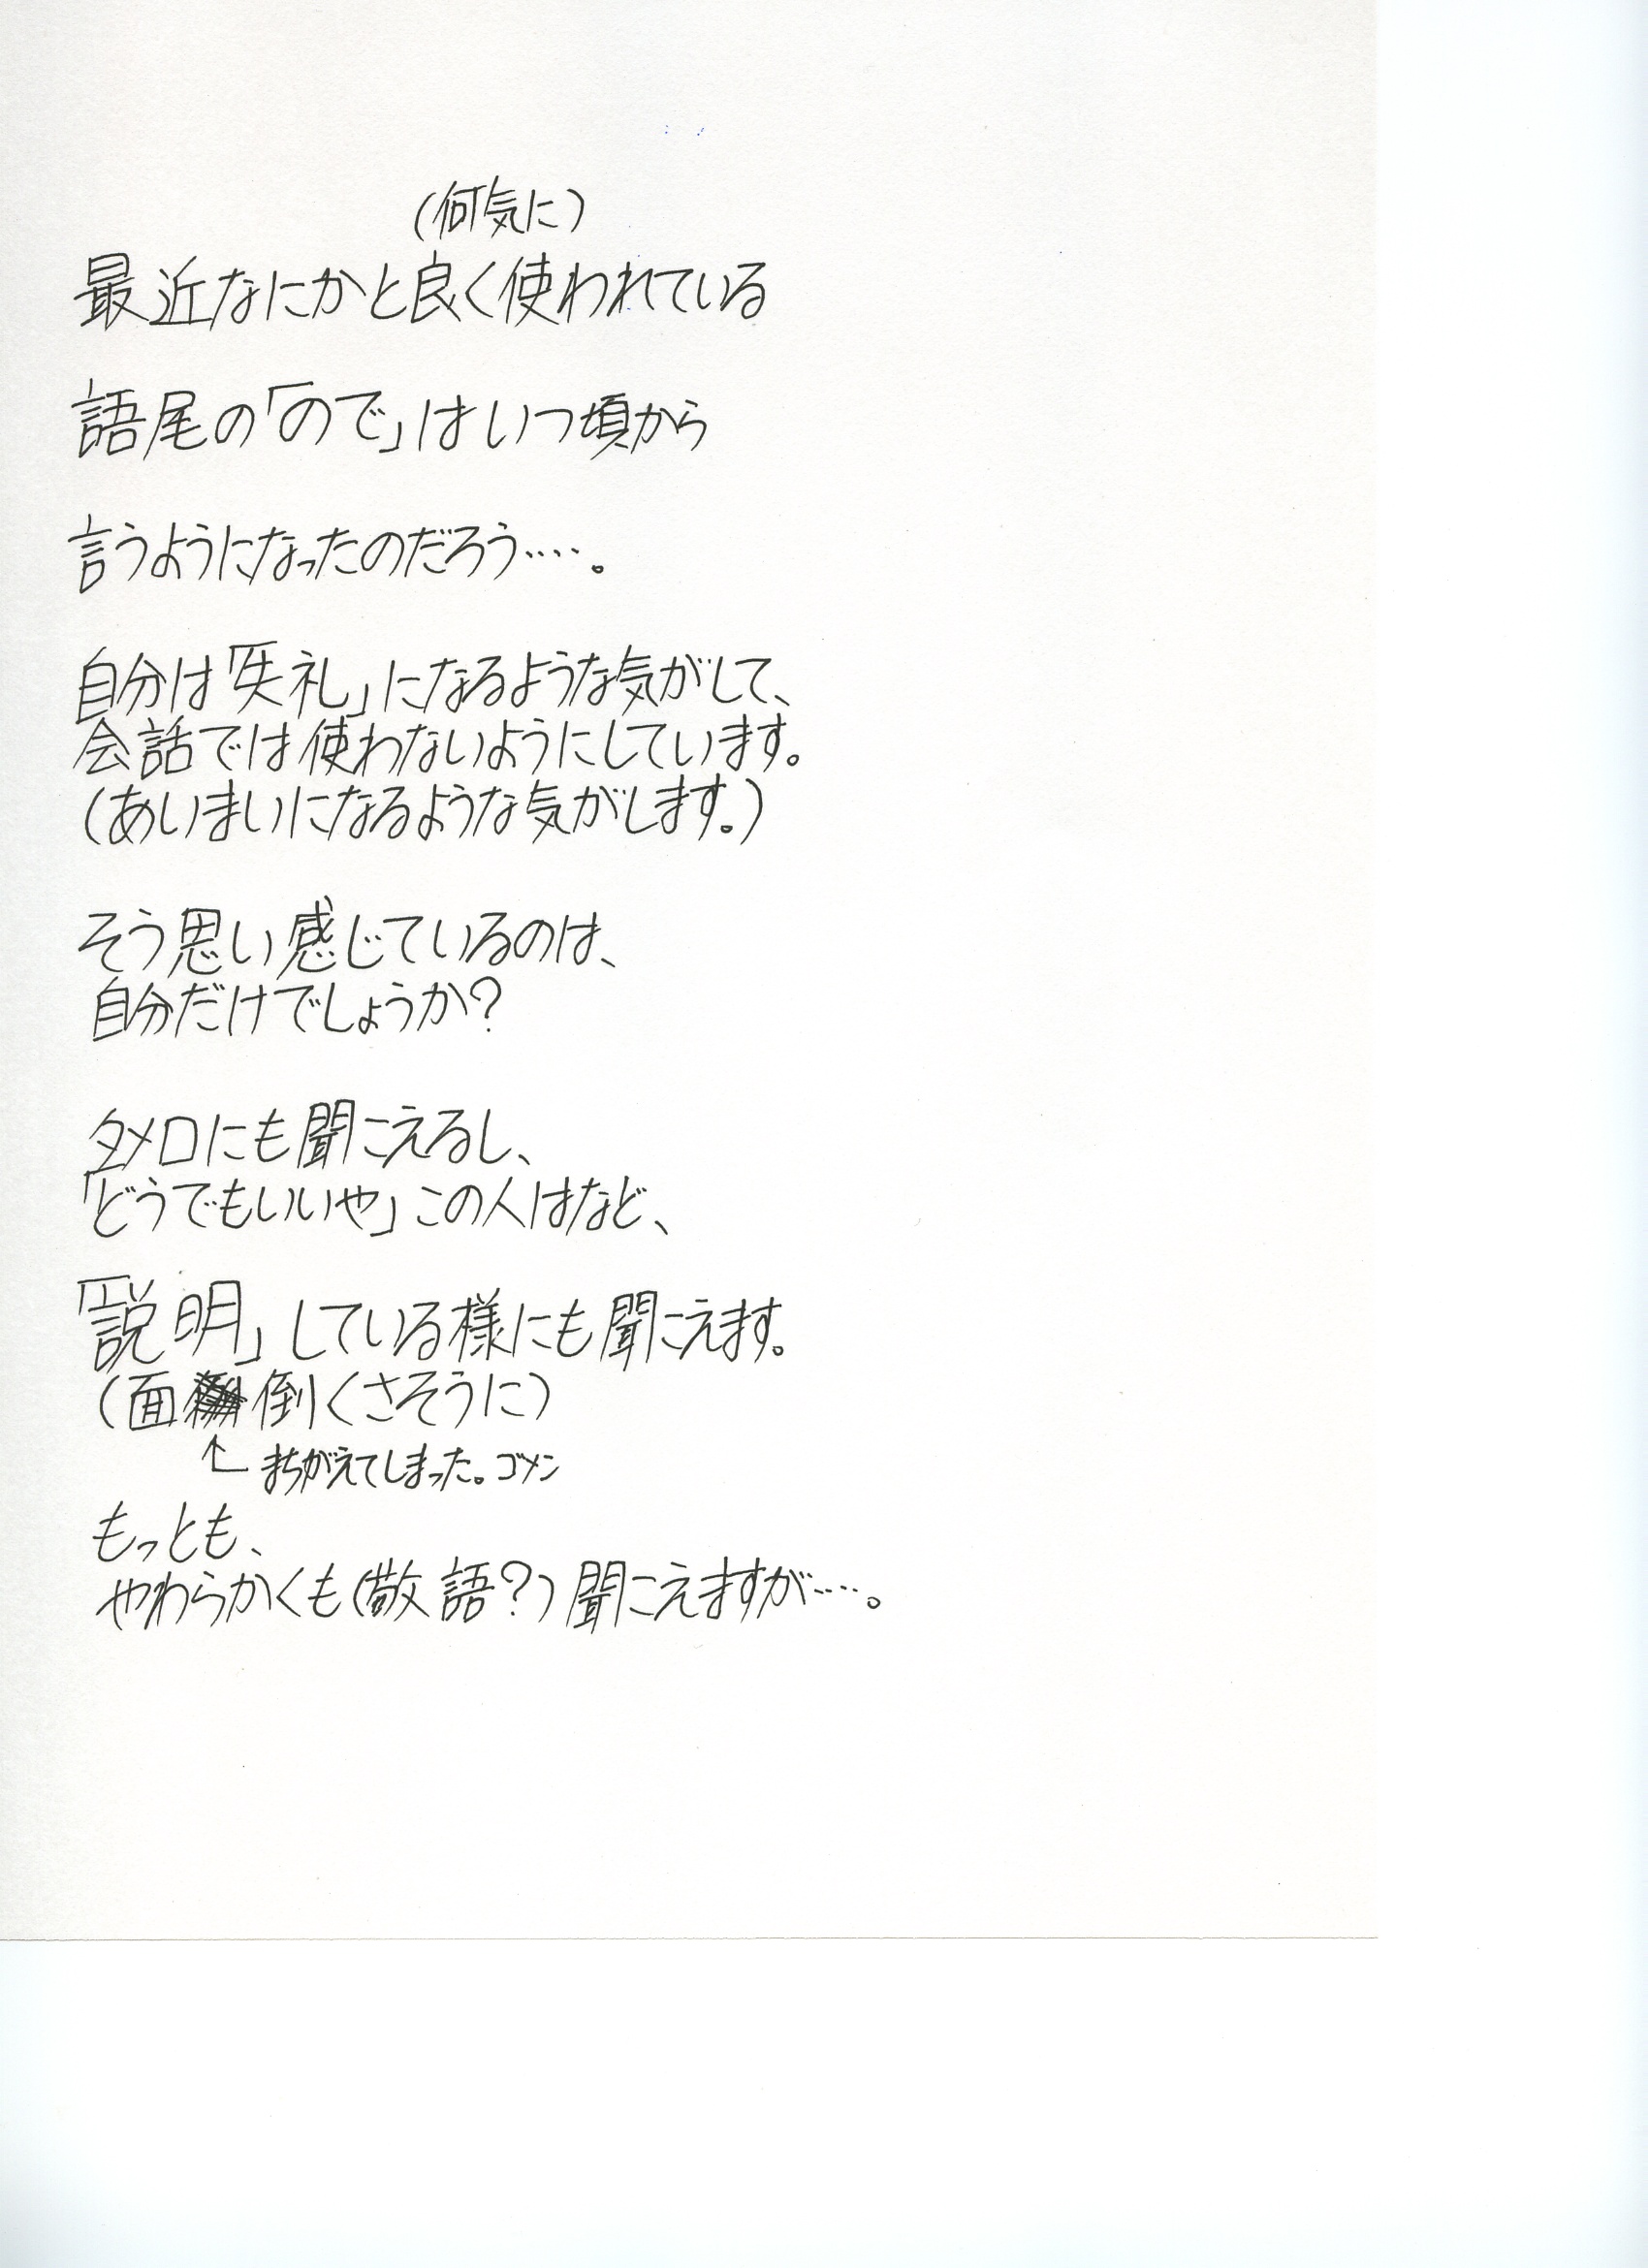 (何気に)
最近なにかと良く使われている
語尾の「ので」はいつ頃から
言うようになったのだろう‥‥。
自分は「失礼」になるような気がして、
会話では使わないようにしています。
(あいまいになるような気がします。)
そう思い感じているのは、
自分だけでしょうか?
タメ口にも聞こえるし、
「どうでもいいや」この人はなど、
「説明」している様にも聞こえます。
(面倒くさそうに)
↑まちがえてしまった。ゴメン
もっとも、
やわらかくも(敬語?)聞こえますが‥‥。